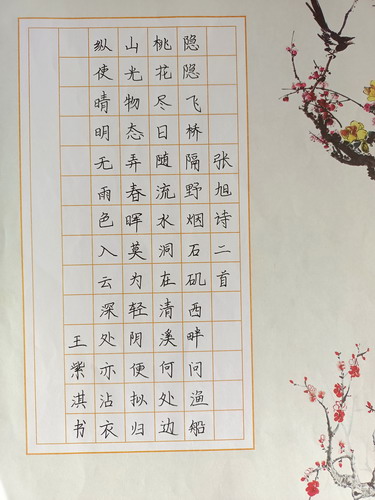 张旭诗二首
隐隐飞桥隔野烟石矶西畔问渔船
桃花尽日随流水洞在清溪何处边
山光物态弄春晖莫为轻阴便拟归
纵使晴明无雨色入云深处亦沾衣
王紫淇书